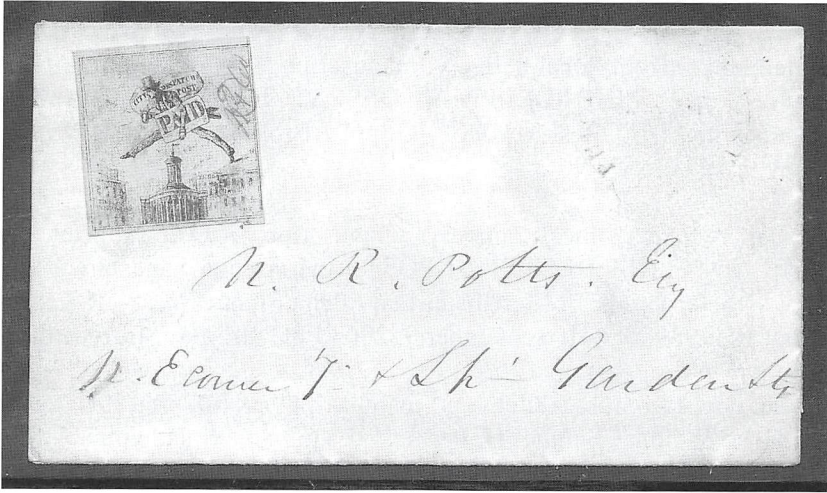 CITY DESPATCH
POST
PAID
N. R. Potts. Esq
N. E corner 7th & Sp. Garden Sts